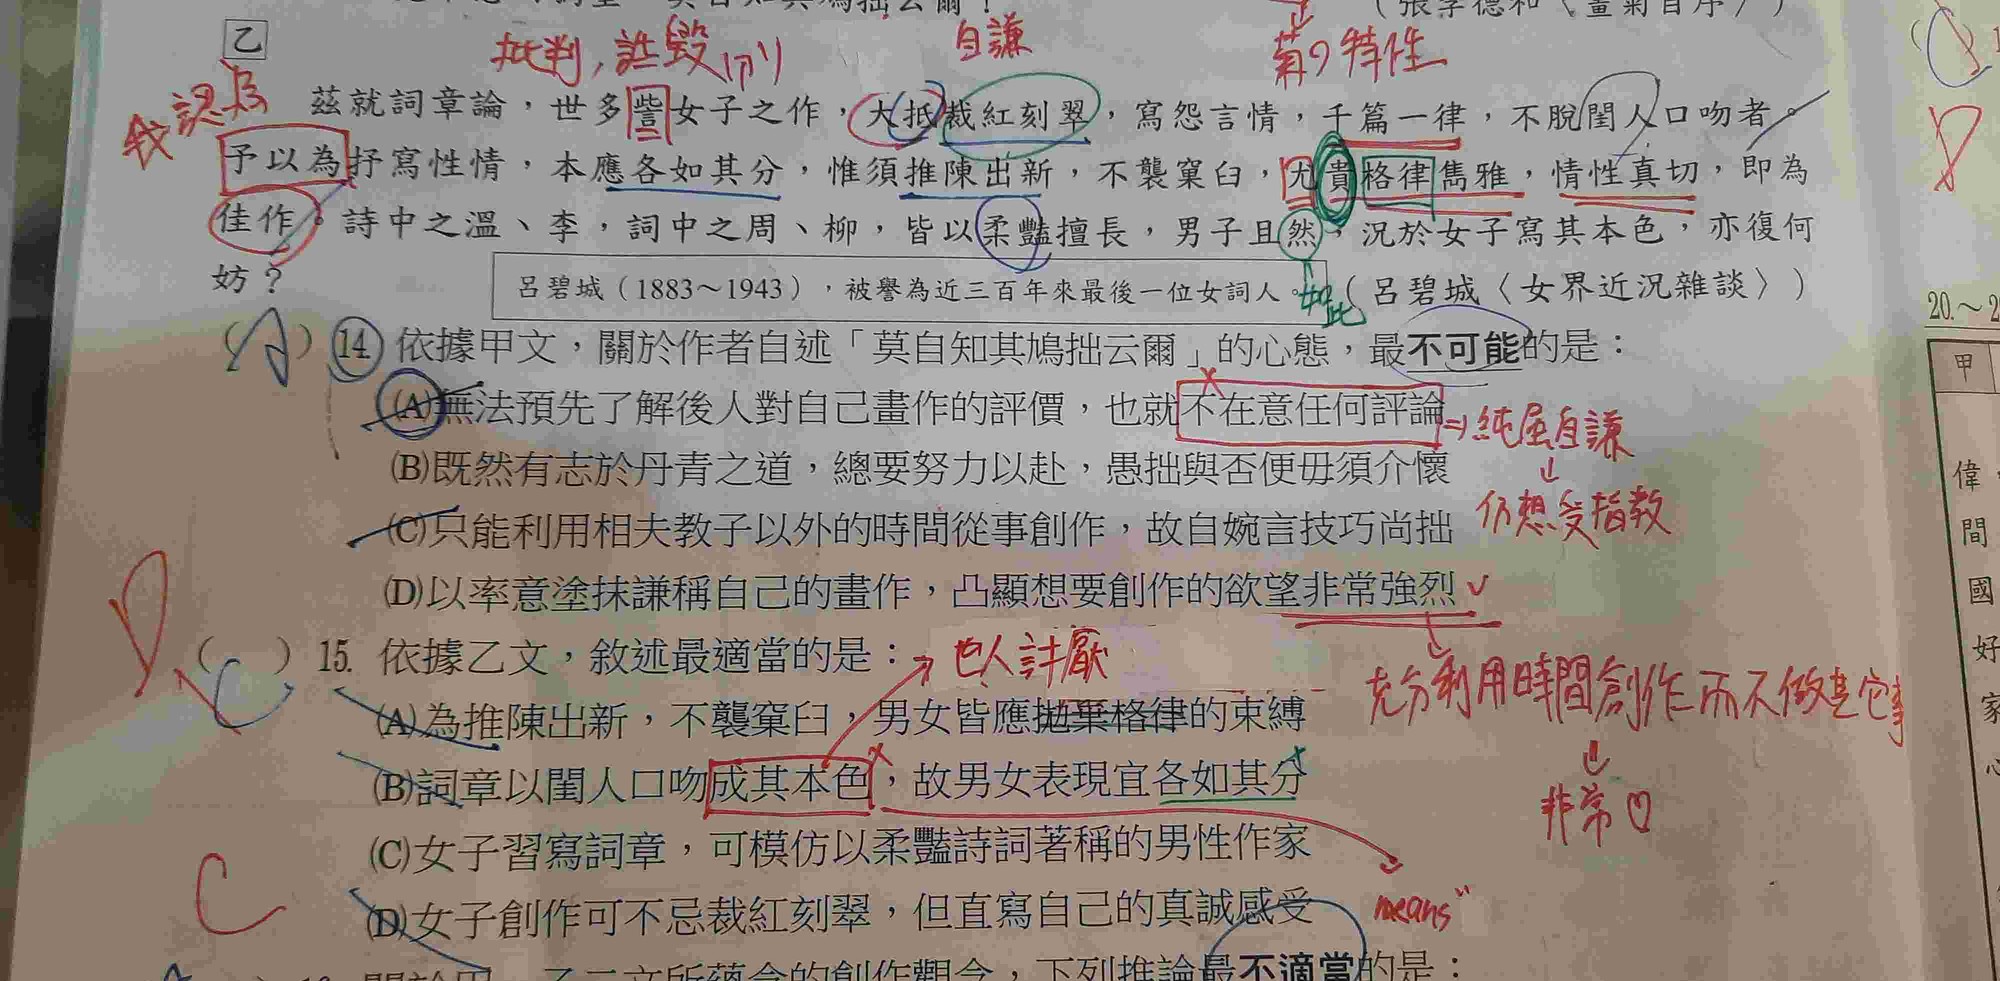 (張李德和〈畫菊自序〉)
乙
批判,詆毀
自謙
菊の特性
我認為
茲就詞章論,世多訾女子之作,大抵裁紅刻翠,寫怨言情,千篇一律,不脫閨人口吻者。
予以為抒寫性情,本應各如其分,惟須推陳出新,不襲窠臼,尤貴格律雋雅,情性真切,即為
佳作。詩中之溫、李,詞中之周、柳,皆以柔豔擅長,男子且然,況於女子寫其本色,亦復何
妨?
呂碧城(1883~1943),被譽為近三百年來最後一位女詞人。
如此
(呂碧城〈女界近況雜談〉)
(A)14.依據甲文,關於作者自述「莫自知其鳩拙云爾」的心態,最不可能的是:
(A)無法預先了解後人對自己畫作的評價,也就不在意任何評論
⇒純屬自謙
↓
仍想受指教
(B)既然有志於丹青之道,總要努力以赴,愚拙與否便毋須介懷
(C)只能利用相夫教子以外的時間從事創作,故自婉言技巧尚拙
(D)以率意塗抹謙稱自己的畫作,凸顯想要創作的欲望非常強烈
充分利用時間創作而不做其它事
↓
非常
D
(C)15.依據乙文,敘述最適當的是:
他人討厭
(A)為推陳出新,不襲窠臼,男女皆應拋棄格律的束縛
(B)詞章以閨人口吻成其本色,故男女表現宜各如其分
(C)女子習寫詞章,可模仿以柔豔詩詞著稱的男性作家
(D)女子創作可不忌裁紅刻翠,但直寫自己的真誠感受
means
C
乙二文所蘊含的創作觀念,下列推論最不適當的是:
20.~2
甲
偉
間
國
好
家
心